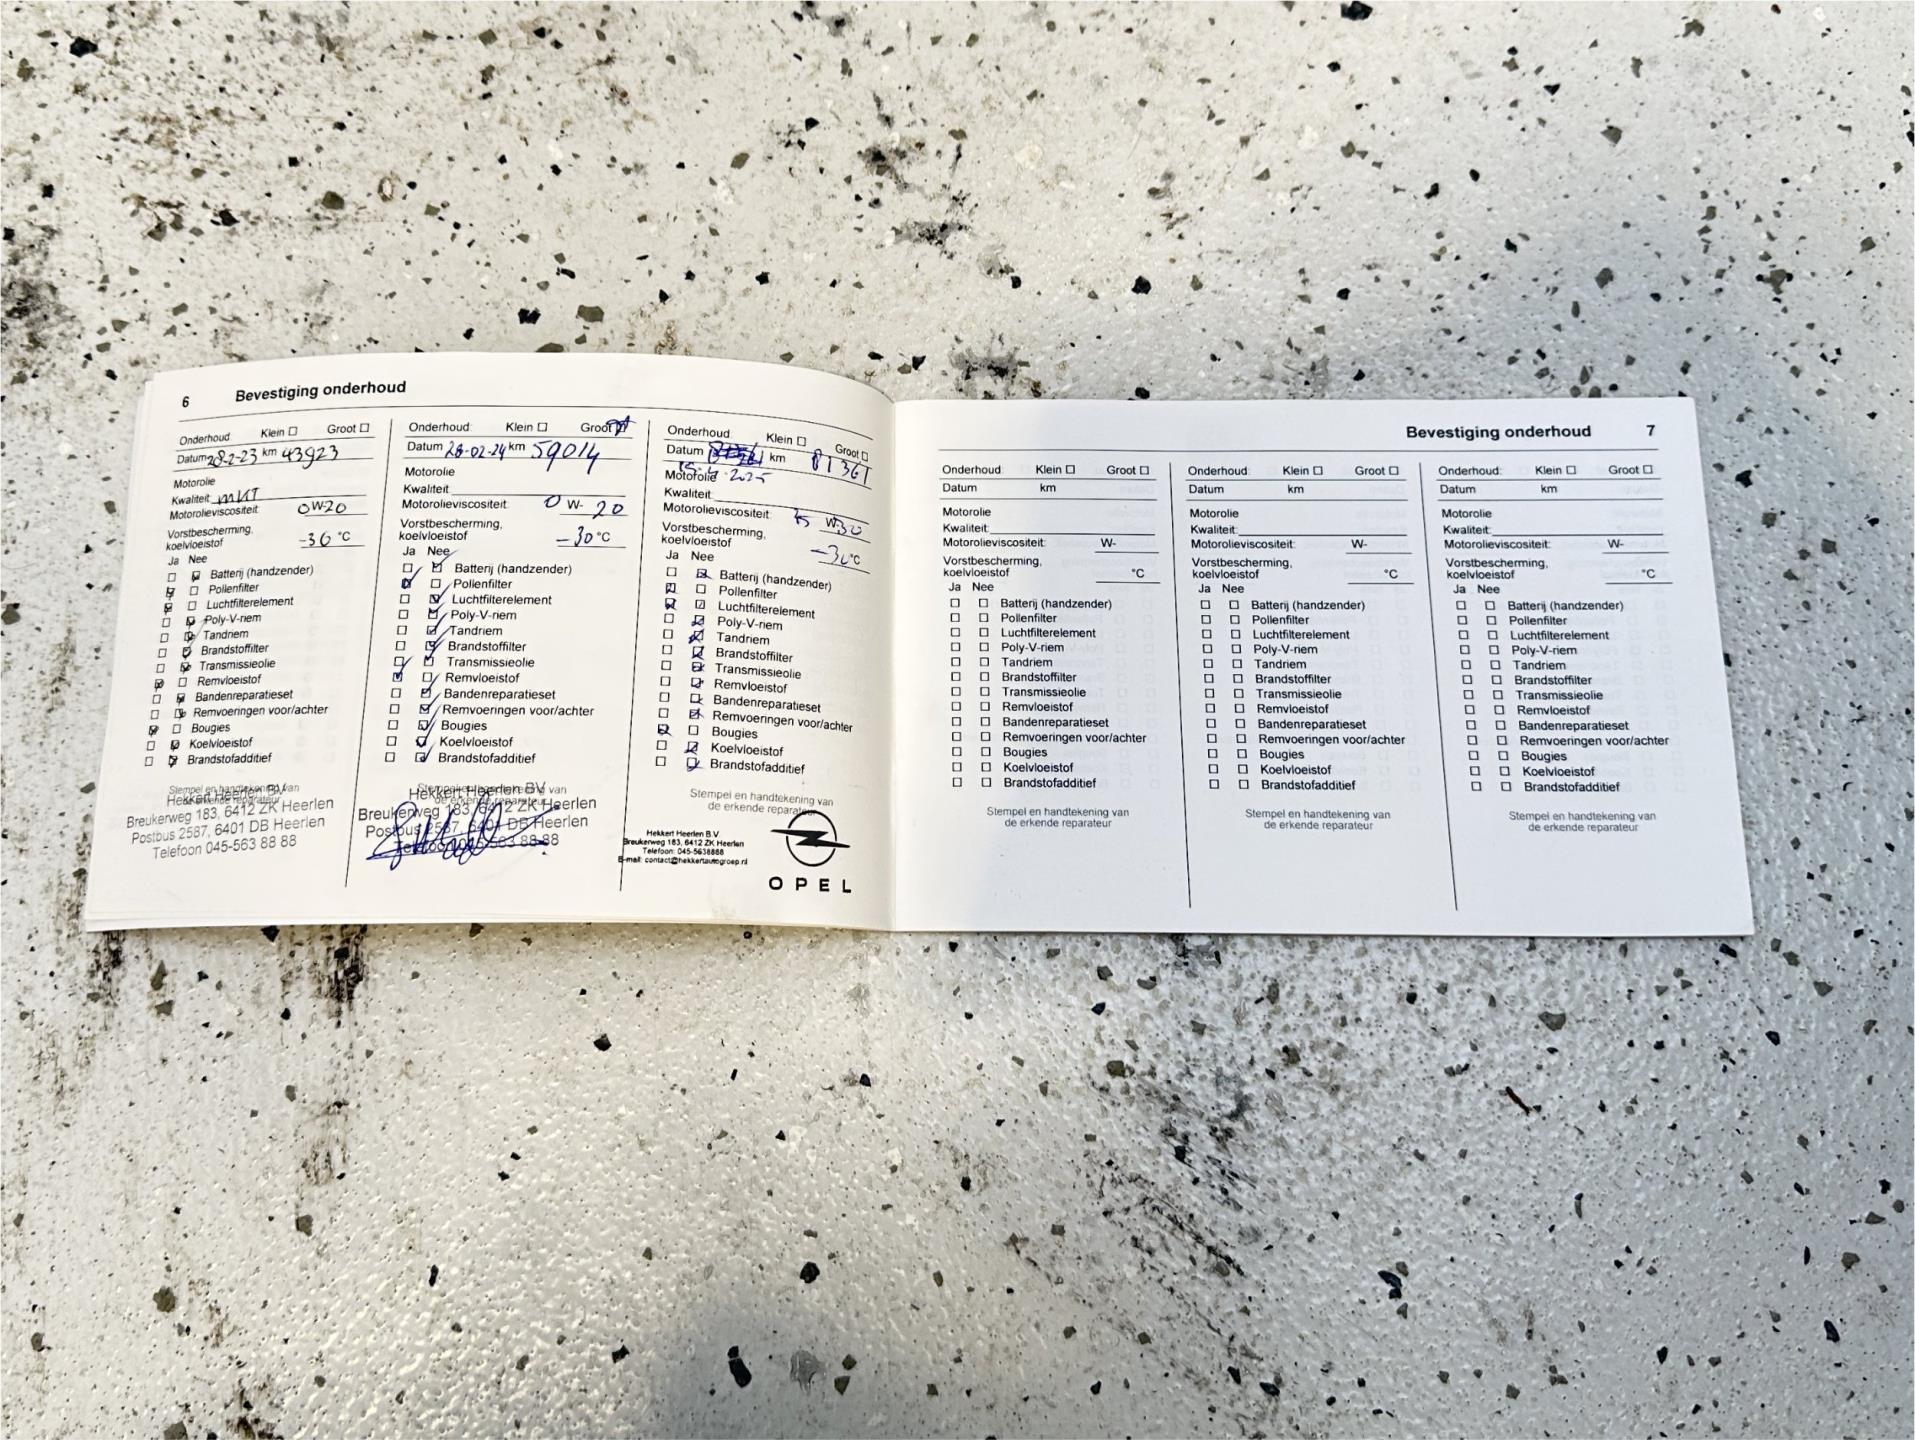 6 Bevestiging onderhoud
Onderhoud: Klein ☐ Groot ☐
Datum 28-2-23 km 43923
Motorolie
Kwaliteit
Motorolieviscositeit: 0W-20
Vorstbescherming,
koelvloeistof -30 °C
Ja Nee
Batterij (handzender)
Pollenfilter
Luchtfilterelement
Poly-V-riem
Tandriem
Brandstoffilter
Transmissieolie
Remvloeistof
Bandenreparatieset
Remvoeringen voor/achter
Bougies
Koelvloeistof
Brandstofadditief
Stempel en handtekening van
de erkende reparateur
Hekkert Heerlen BV
Breukerweg 183, 6412 ZK Heerlen
Postbus 2587, 6401 DB Heerlen
Telefoon 045-563 88 88
Onderhoud: Klein ☐ Groot
Datum 28-02-24 km 59014
Motorolie
Kwaliteit
Motorolieviscositeit: 0 W- 20
Vorstbescherming,
koelvloeistof -30 °C
Ja Nee
Batterij (handzender)
Pollenfilter
Luchtfilterelement
Poly-V-riem
Tandriem
Brandstoffilter
Transmissieolie
Remvloeistof
Bandenreparatieset
Remvoeringen voor/achter
Bougies
Koelvloeistof
Brandstofadditief
Stempel en handtekening van
de erkende reparateur
Hekkert Heerlen BV
Breukerweg 183, 6412 ZK Heerlen
Postbus 2587, 6401 DB Heerlen
Telefoon 045-563 88 88
Onderhoud: Klein ☐ Groot ☐
Datum km 81361
2025
Motorolie
Kwaliteit
Motorolieviscositeit: W-30
Vorstbescherming,
koelvloeistof -30 °C
Ja Nee
Batterij (handzender)
Pollenfilter
Luchtfilterelement
Poly-V-riem
Tandriem
Brandstoffilter
Transmissieolie
Remvloeistof
Bandenreparatieset
Remvoeringen voor/achter
Bougies
Koelvloeistof
Brandstofadditief
Stempel en handtekening van
de erkende reparateur
Hekkert Heerlen B.V
Breukerweg 183, 6412 ZK Heerlen
Telefoon: 045-5638888
E-mail: contact@hekkertautogroep.nl
OPEL
Bevestiging onderhoud 7
Onderhoud: Klein ☐ Groot ☐
Datum km
Motorolie
Kwaliteit:
Motorolieviscositeit: W-
Vorstbescherming,
koelvloeistof °C
Ja Nee
☐ ☐ Batterij (handzender)
☐ ☐ Pollenfilter
☐ ☐ Luchtfilterelement
☐ ☐ Poly-V-riem
☐ ☐ Tandriem
☐ ☐ Brandstoffilter
☐ ☐ Transmissieolie
☐ ☐ Remvloeistof
☐ ☐ Bandenreparatieset
☐ ☐ Remvoeringen voor/achter
☐ ☐ Bougies
☐ ☐ Koelvloeistof
☐ ☐ Brandstofadditief
Stempel en handtekening van
de erkende reparateur
Onderhoud: Klein ☐ Groot ☐
Datum km
Motorolie
Kwaliteit:
Motorolieviscositeit: W-
Vorstbescherming,
koelvloeistof °C
Ja Nee
☐ ☐ Batterij (handzender)
☐ ☐ Pollenfilter
☐ ☐ Luchtfilterelement
☐ ☐ Poly-V-riem
☐ ☐ Tandriem
☐ ☐ Brandstoffilter
☐ ☐ Transmissieolie
☐ ☐ Remvloeistof
☐ ☐ Bandenreparatieset
☐ ☐ Remvoeringen voor/achter
☐ ☐ Bougies
☐ ☐ Koelvloeistof
☐ ☐ Brandstofadditief
Stempel en handtekening van
de erkende reparateur
Onderhoud: Klein ☐ Groot ☐
Datum km
Motorolie
Kwaliteit:
Motorolieviscositeit: W-
Vorstbescherming,
koelvloeistof °C
Ja Nee
☐ ☐ Batterij (handzender)
☐ ☐ Pollenfilter
☐ ☐ Luchtfilterelement
☐ ☐ Poly-V-riem
☐ ☐ Tandriem
☐ ☐ Brandstoffilter
☐ ☐ Transmissieolie
☐ ☐ Remvloeistof
☐ ☐ Bandenreparatieset
☐ ☐ Remvoeringen voor/achter
☐ ☐ Bougies
☐ ☐ Koelvloeistof
☐ ☐ Brandstofadditief
Stempel en handtekening van
de erkende reparateur